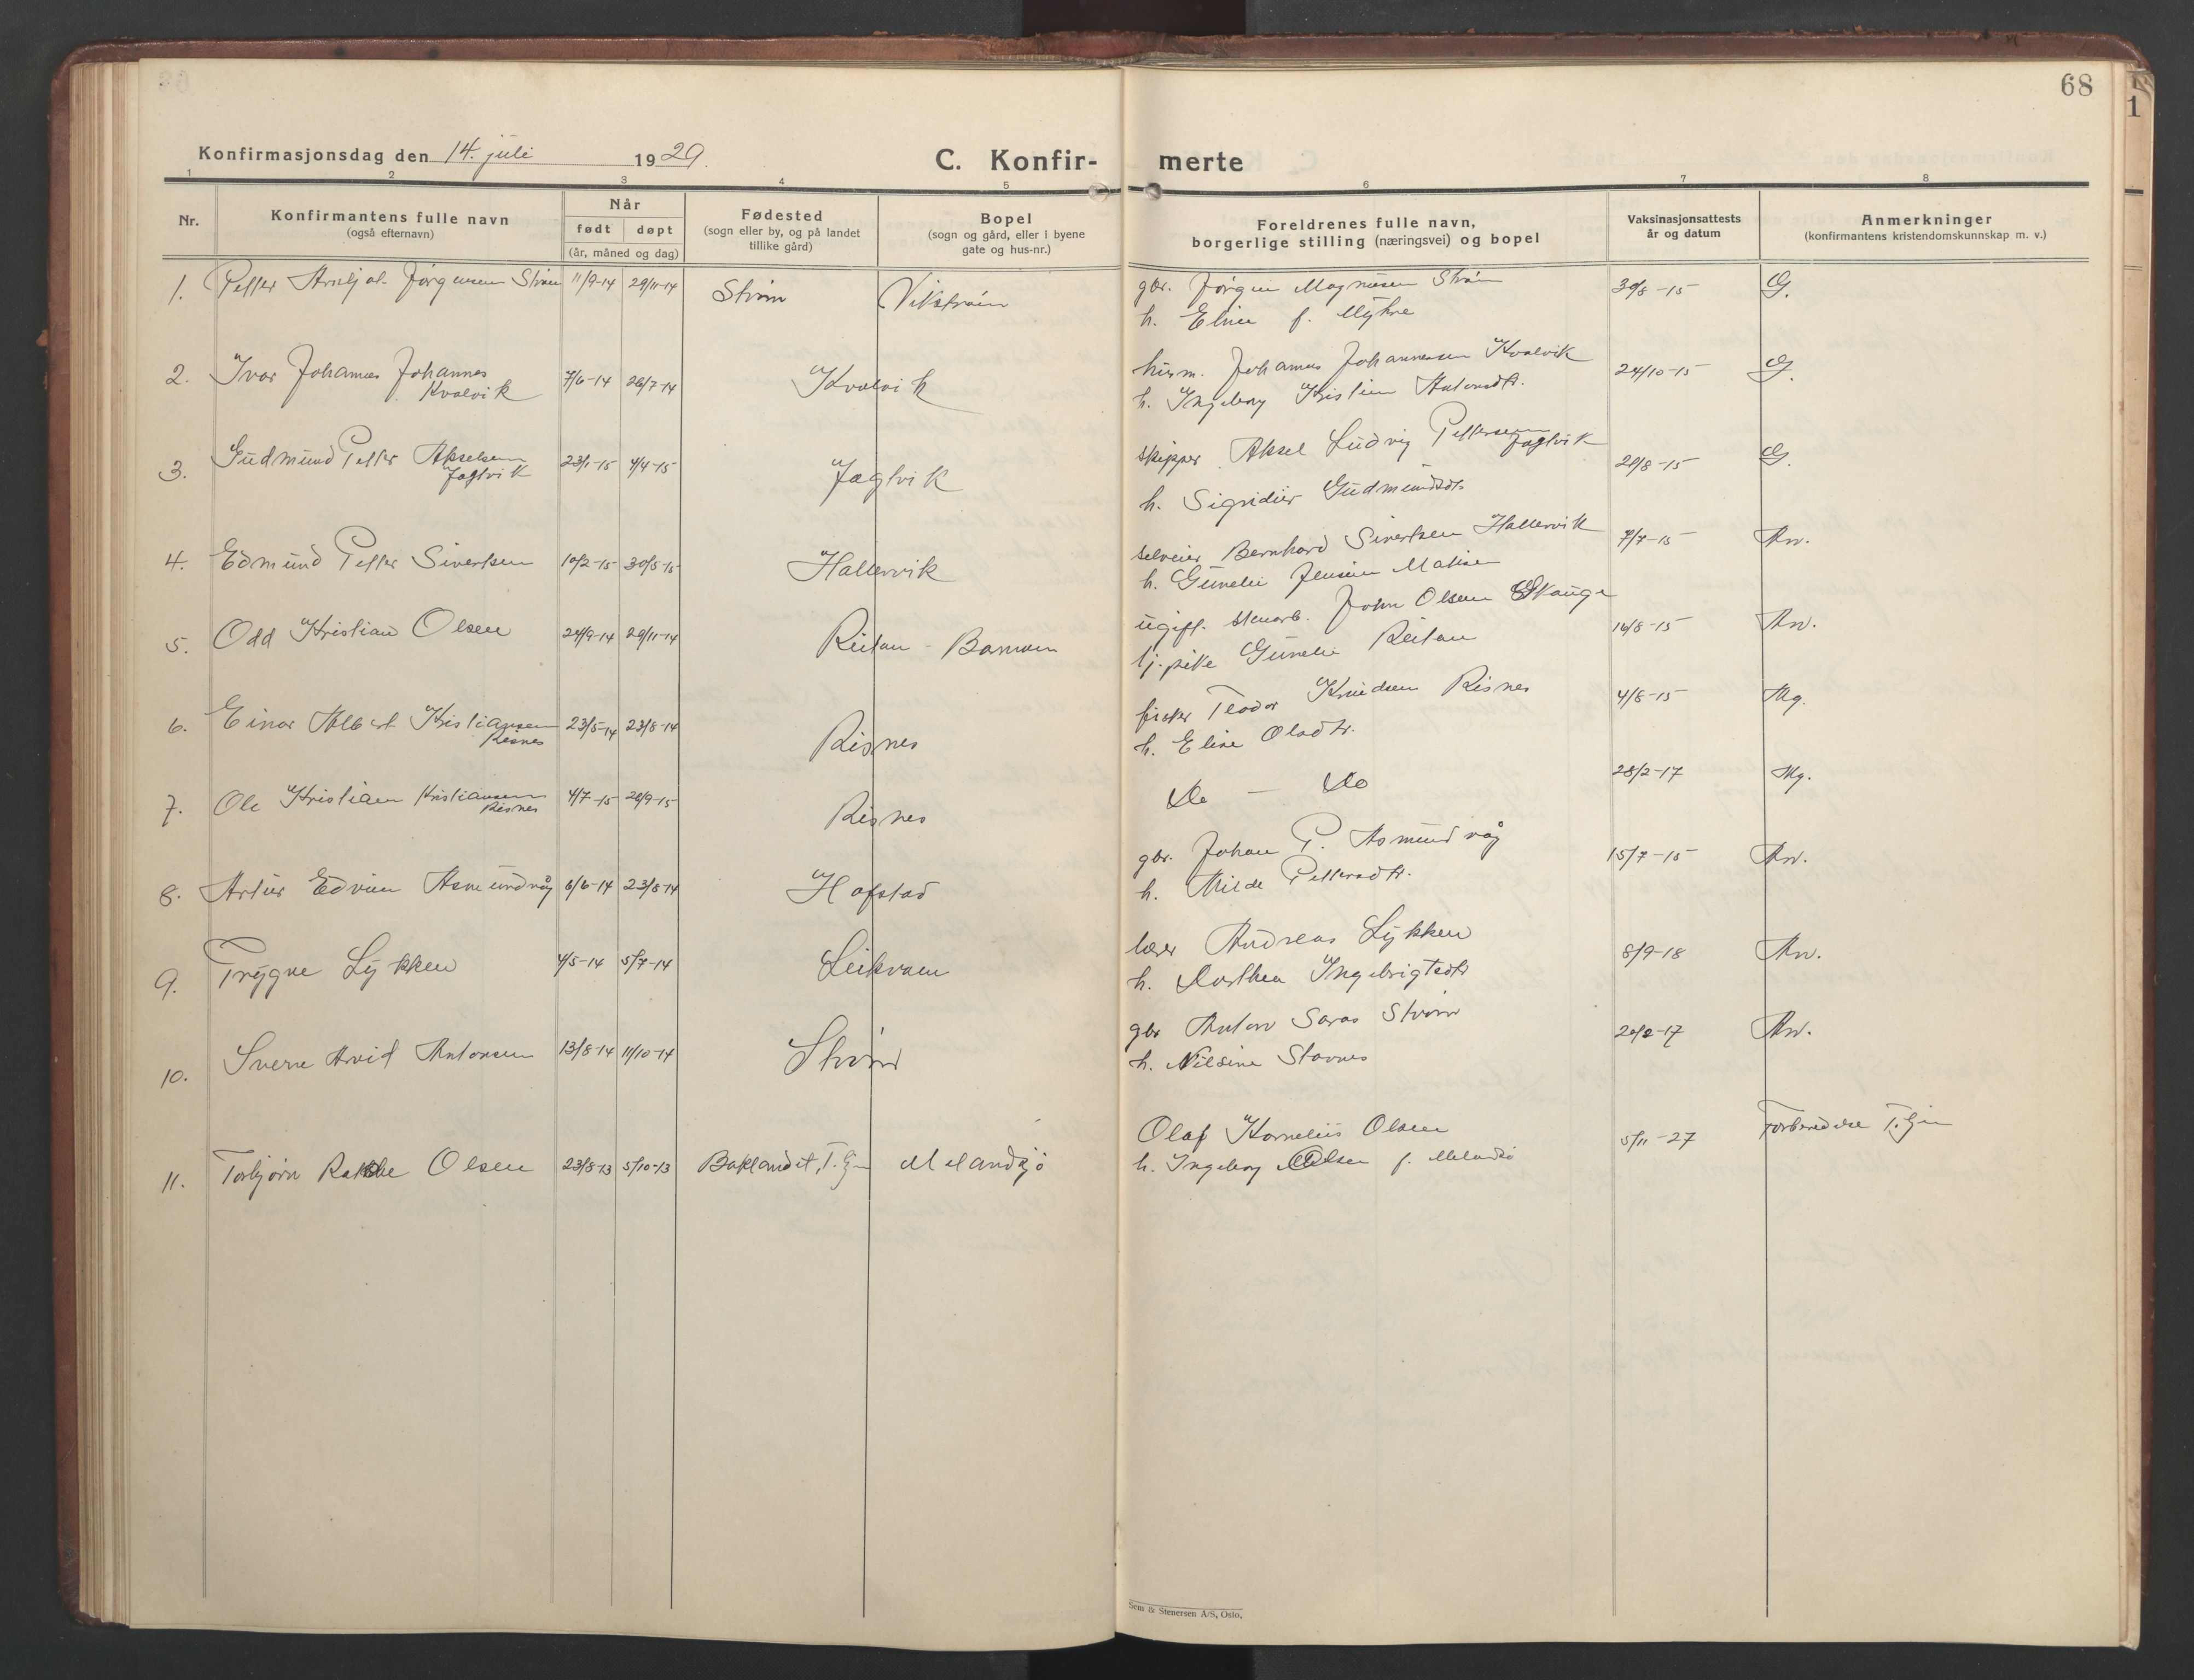 68
Konfirmasjonsdag den 14. juli 1929.
C. Konfir-
merte
1 2 3 4 5 6 7 8
Nr.
Konfirmantens fulle navn
(også efternavn)
Når
født døpt
(år, måned og dag)
Fødested
(sogn eller by, og på landet
tillike gård)
Bopel
(sogn og gård, eller i byene
gate og hus-nr.)
Foreldrenes fulle navn,
borgerlige stilling (næringsvei) og bopel
Vaksinasjonsattests
år og datum
Anmerkninger
(konfirmantens kristendomskunnskap m. v.)
1. Petter Jørgensen Strøm 11/9-14 29/11-14 Strøm Vikstrøm gbr. Jørgen Magnusen Strøm 30/8-15 G.
h. Eline f. Myhre
2. Ivar Johannes Johannes 7/6-14 26/7-14 Kvalvik husm. Johannes Johannesen Kvalvik 24/10-15 G.
Kvalvik
h. Ingeborg Kristine Antonsdtr.
3. Gudmund Petter Akselsen 23/1-15 4/4-15 Jøgtvik skipper Aksel Ludvig Pettersen Jøgtvik 29/8-15 G.
Jøgtvik
h. Sigridur Gudmundsdtr
4. Edmund Petter Sivertsen 10/2-15 30/5-15 Hallervik selveier Bernhard Sivertsen Hallervik 7/7-15 Mv.
h. Gunelie Jensine
5. Odd Kristian Olsen 29/11-14 Reitan - ugift. stenarb. John Olsen Skauge 16/8-15 Mv.
pike Gunelie Reitan
6. Einar Albert Kristiansen 23/5-14 23/8-14 Risnes fisker Teodor Knudsen Risnes 4/8-15 Mg.
Risnes
h. Eline Olsdtr.
7. Ole Kristian Kristiansen 4/7-15 Risnes Do — Do 28/2-17 Mg.
Risnes
8. Artur Edvin Asmundvåg 6/6-14 23/8-14 Hofstad gbr. Johan P. Asmundvåg 15/7-15 Mv.
h. Milde Pettersdtr.
9. Trygve Lykken 4/5-14 5/7-14 Leikvam lærer Andreas Lykken 8/9-18 Mv.
h. Dorthea Ingebrigtsdtr
10. Sverre Arvid Antonsen 13/8-14 11/10-14 Strøm gbr Anton Saras Strøm Mv.
h. Nilsine Stavnes
11. Torbjørn Olsen 23/8-13 5/10-13 Baklandet, T.hjm Melandsjø Olaf Kornelius Olsen 5/11-27 Forberedelse T.hjm
h. Ingeborg Olsen f. Melandsø
Sem & Stenersen A/S, Oslo.
1